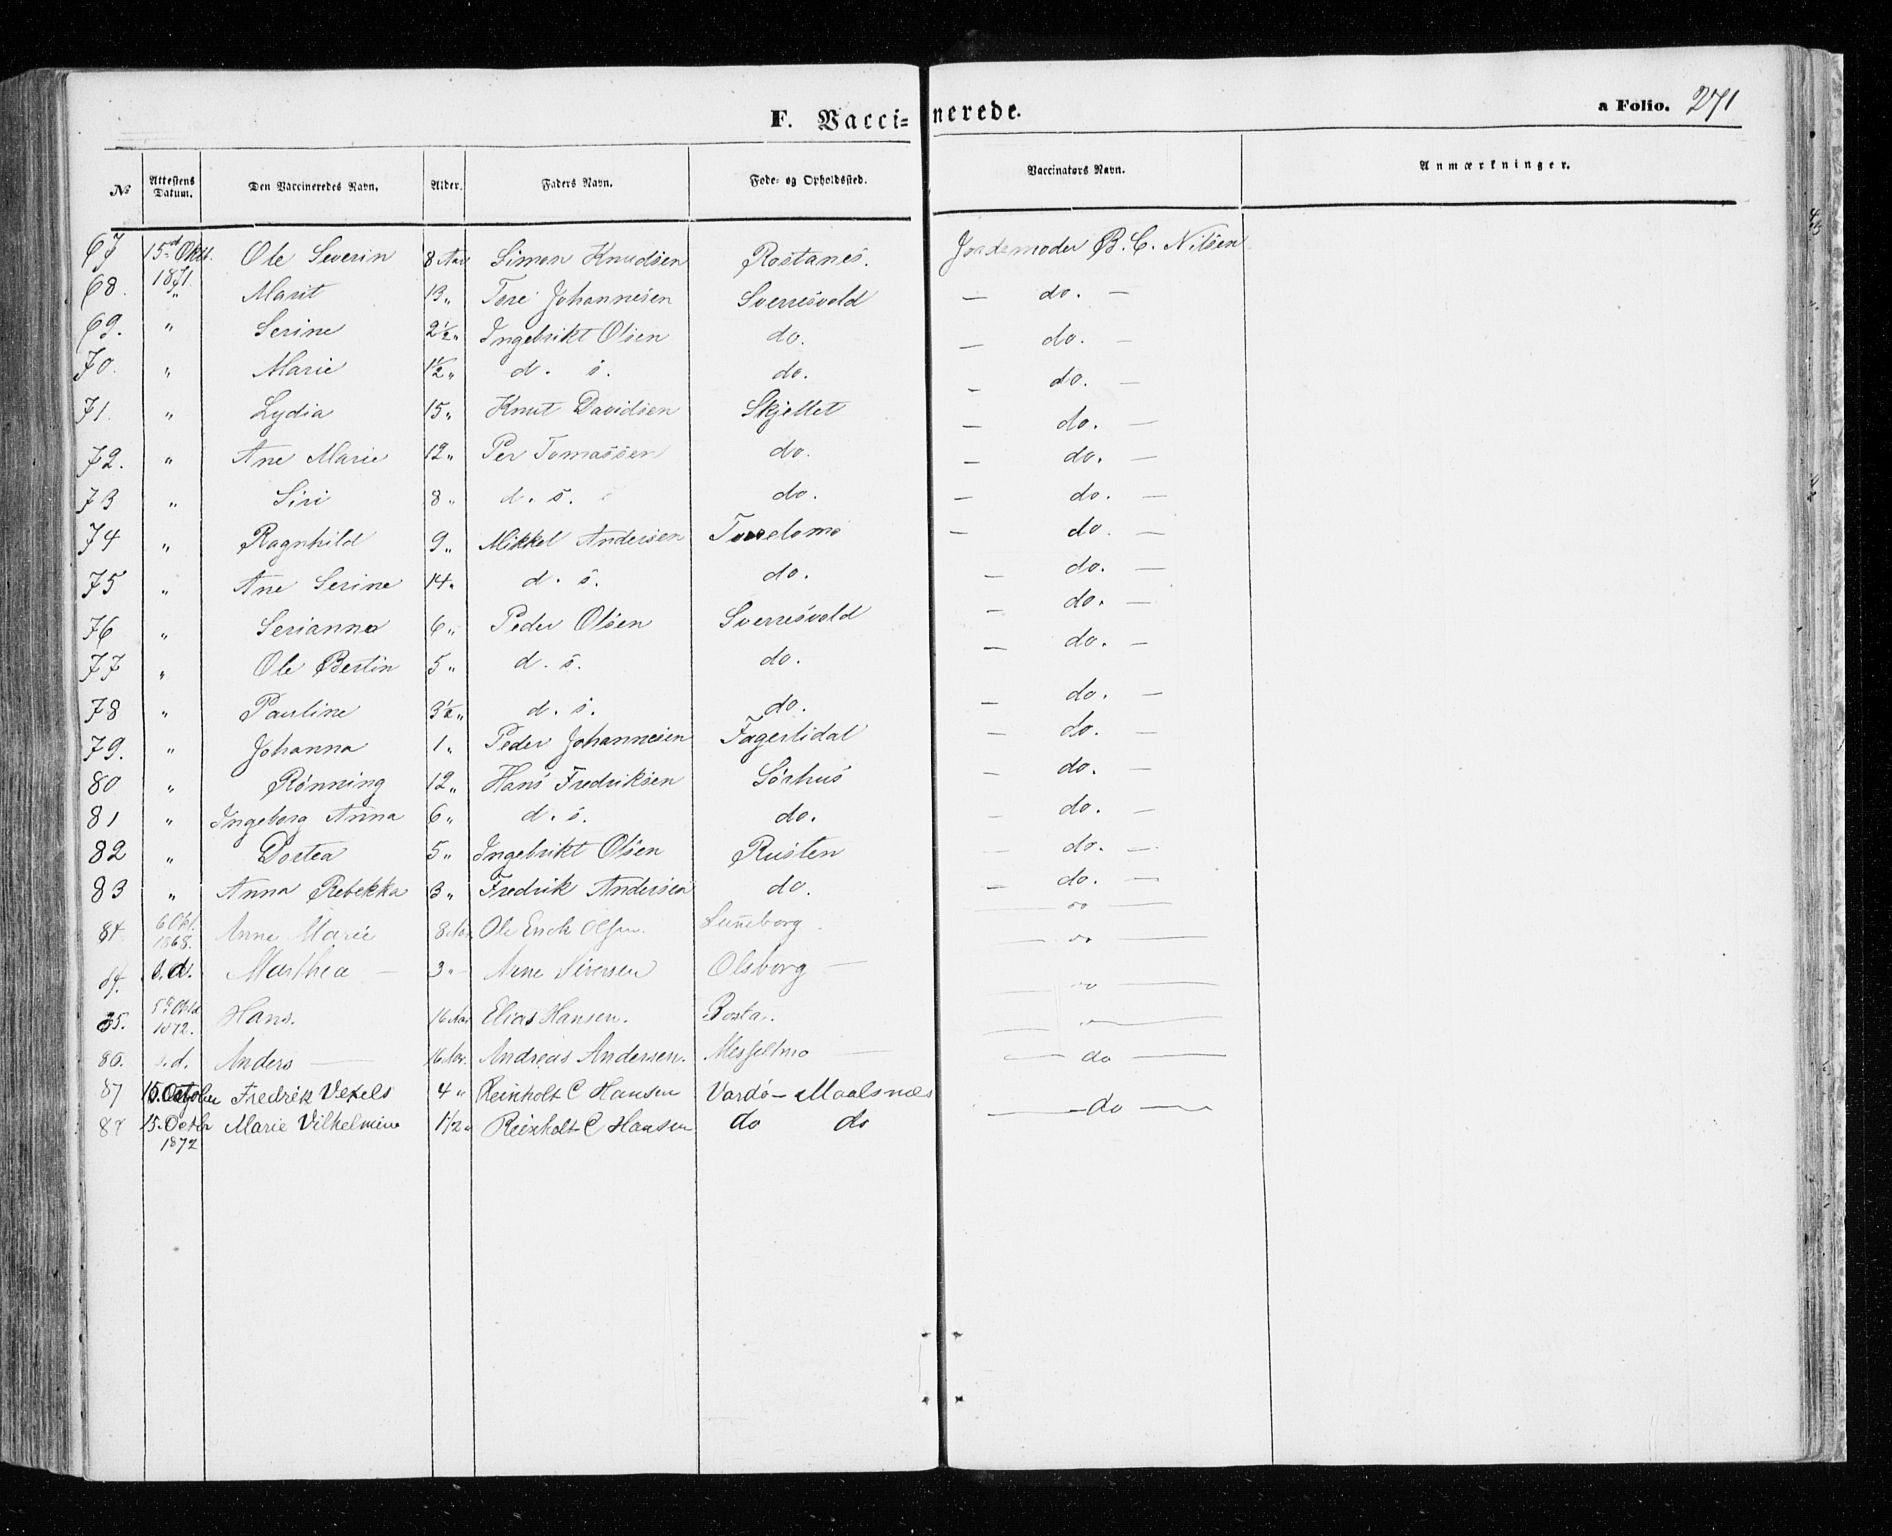 F. Vaccinerede.
a Folio. 271
№ Attestens Datum. Den Vaccineredes Navn. Alder. Faders Navn. Føde- og Opholdssted. Vaccinators Navn. Anmærkninger.
67 15d Oktb. 1871. Ole Severin 8 Aar Simon Knudsen Rostanes. Jordemoder B. C. Nilsen
68. " Marit 13 " Tore Johannesen Sverresvold — do. —
69. " Serine 2½ " Ingebrikt Olsen do. — do. —
70. " Marie 1½ " d. s. do. — do. —
71. " Lydia 15 " Knut Davidsen Skjellet — do. —
72. " Ane Marie 12 " Per Tomassen do. — do. —
73 " Siri 8 " d. s. do. — do. —
74 " Ragnhild 9 " Mikkel Andersen — do. —
75 " Ane Serine 14 " d. s. do. — do. —
76 " Serianna 6 " Peder Olsen Sverresvold — do. —
77 " Ole Bertin 5 " d. s. do. — do. —
78 " Pauline 3½ " d. s. do. — do. —
79. " Johanna 1 " Peder Johannesen Fagerlidal — do. —
80 " Rønning 12 " Hans Fredriksen Sørhus — do. —
81 " Ingeborg Anna 6 " d. s. do. — do. —
82 " Dortea 5 " Ingebrikt Olsen Rusten — do. —
83 " Anna Rebekka 3 " Fredrik Andersen do. — do. —
84. 6 Okt. 1868. Anne Marie 8 Aar Ole Erick Olsen. Luneborg
84. s. d. Marthea — 3 " Arne Siversen Olsborg —
85. 5te Oktb 1872. Hans. 16 Aar Elias Hansen. Rosta.
86. s. d. Anders — 16 Aar. Andreas Andersen. Messeltmo — — do —
87 15. October Fredrik Vexels 4 " Reinholt C Hansen Vardø — Maalsnes — do —
87 15. Octbr 1872 Marie Vilhelmine 1 1/2 " Reinholt C Hansen do do